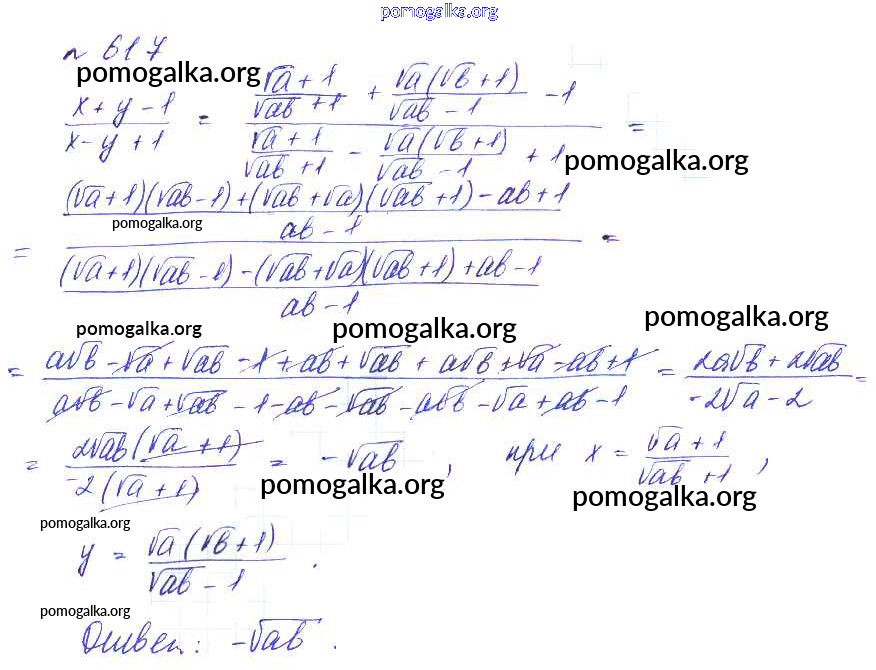 pomogalka.org
№ 617
pomogalka.org
(x + y − 1)/(x − y + 1) = ((√a + 1)/(√ab + 1) + √a(√b + 1)/(√ab − 1) − 1)/((√a + 1)/(√ab + 1) − √a(√b + 1)/(√ab − 1) + 1) =
pomogalka.org
= (((√a + 1)(√ab − 1) + (√ab + √a)(√ab + 1) − ab + 1)/(ab − 1))/(((√a + 1)(√ab − 1) − (√ab + √a)(√ab + 1) + ab − 1)/(ab − 1)) =
pomogalka.org
pomogalka.org pomogalka.org pomogalka.org
= (a√b − √a + √ab − 1 + ab + √ab + a√b + √a − ab + 1)/(a√b − √a + √ab − 1 − ab − √ab − a√b − √a + ab − 1) = (2a√b + 2√ab)/(−2√a − 2) =
= 2√ab(√a + 1)/(−2(√a + 1)) = −√ab, при x = (√a + 1)/(√ab + 1),
pomogalka.org pomogalka.org
pomogalka.org
y = √a(√b + 1)/(√ab − 1).
pomogalka.org
Ответ: −√ab.